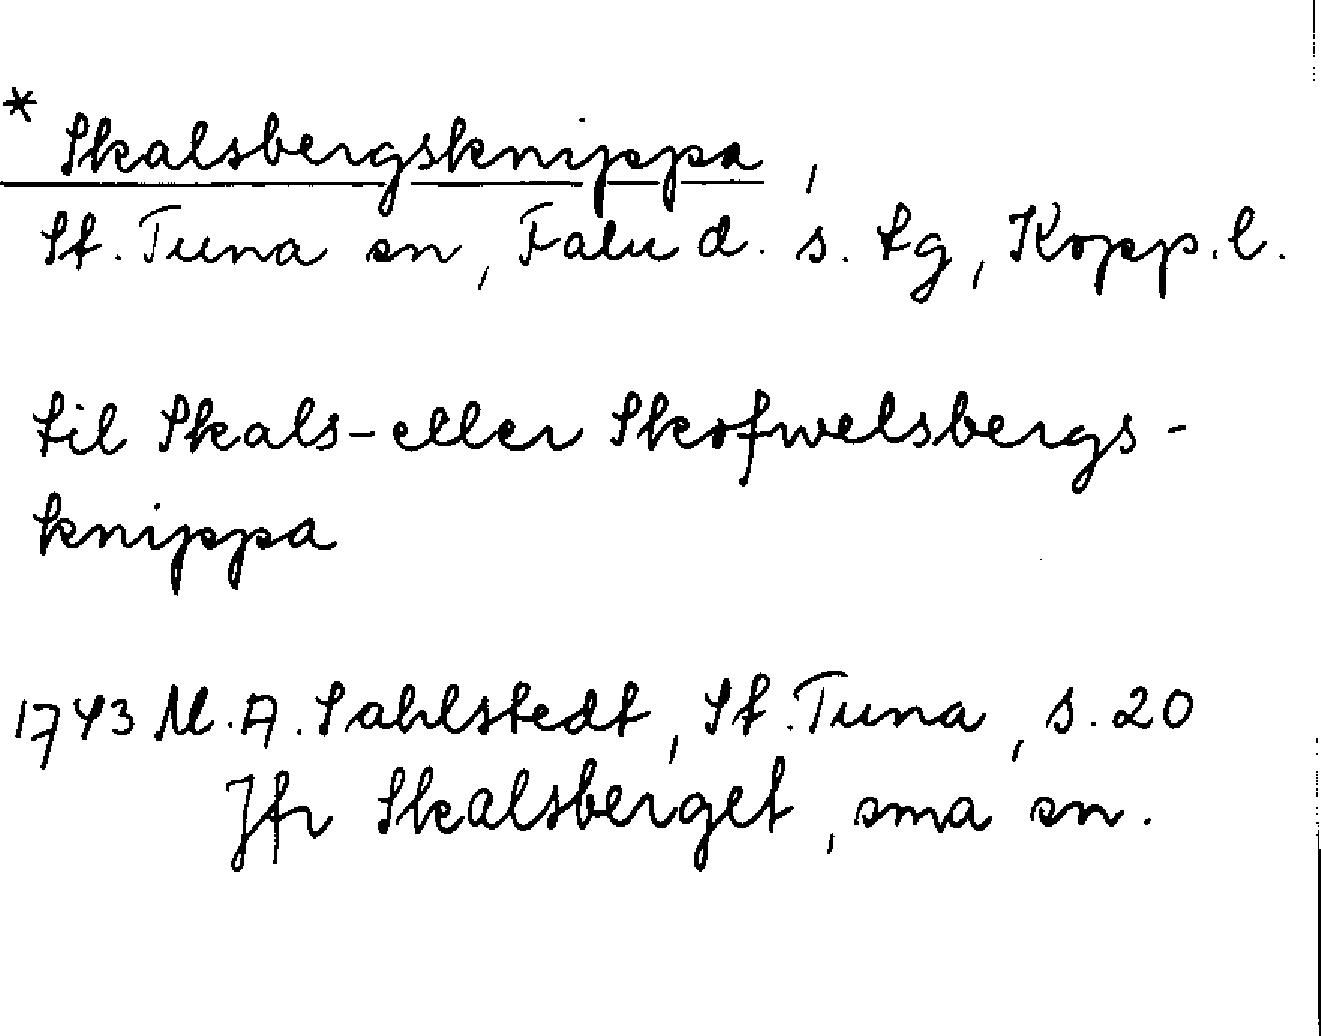 * Skalsbergsknippa,
St. Tuna sn, Falu d. s. tg, Kopp. l.
til Skals- eller Skofwelsbergs-
knippa
1743 M. A. Sahlstedt, St. Tuna, s. 20
Jfr Skalsberget, sma sn.